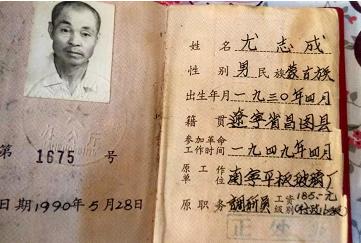 姓名 尤志成
性别 男 民族 蒙古族
出生年月 一九三〇年四月
籍贯 辽宁省昌图县
参加革命工作时间 一九四九年四月
原工作单位 南宁平板玻璃厂
原职务 调研员 工资级别 185.-元
第 1675 号
日期 1990年5月28日